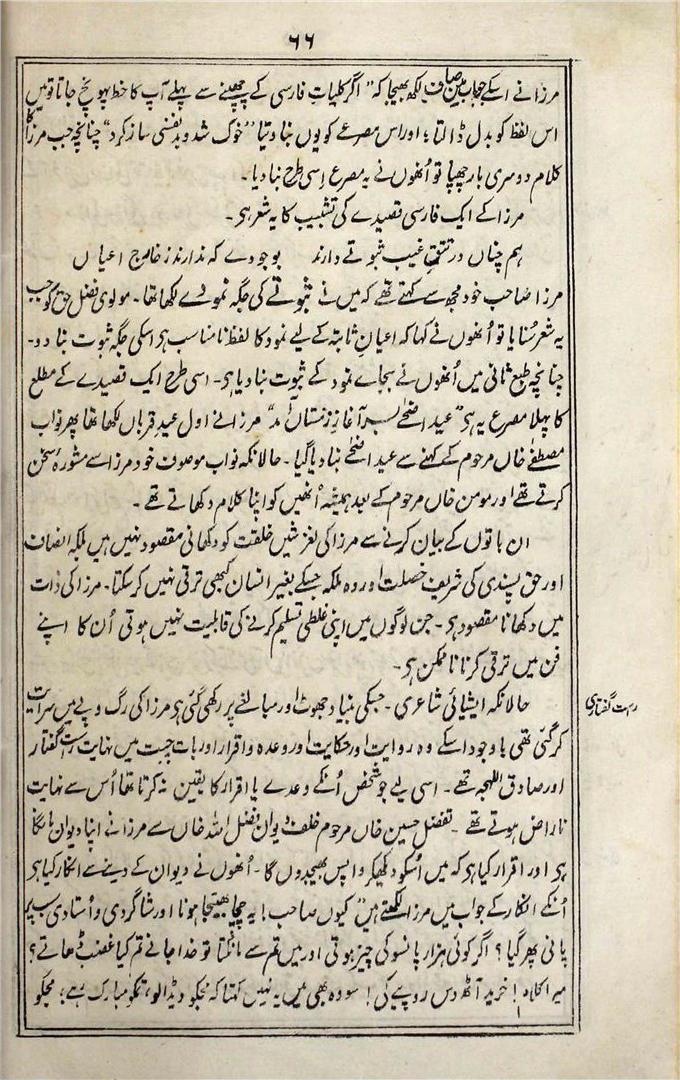 ۶۶
مرزا نے اسکے جواب میں صاف لکھ بھیجا کہ "اگر کلیات فارسی کے چھپنے سے پہلے آپ کا خط پہونچ جاتا تو میں
اس لفظ کو بدل ڈالتا؛ اور اس مصرعے کو یوں بنا دیتا "خوک شد و بد نفسی ساز کرد" چنانچہ جب مرزا کا
کلام دوسری بار چھپا تو اُنھوں نے یہ مصرع اِسی طرح بنا دیا۔
مرزا کے ایک فارسی قصیدے کی تشبیب کا یہ شعر ہی۔
ہم چناں در تتق غیب ثبوتے دارند بوجودے کہ ندارند ز خارج اعیاں
مرزا صاحب خود مجھ سے کہتے تھے کہ میں نے ثبوتے کی جگہ نمودے لکھا تھا۔ مولوی فضل حق کو جب
یہ شعر سُنایا تو اُنھوں نے کہا کہ اعیان ثابتہ کے لیے نمود کا لفظ نامناسب ہی اسکی جگہ ثبوت بنا دو۔
چنانچہ طبع ثانی میں اُنھوں نے بجاے نمود کے ثبوت بنا دیا ہی۔ اسی طرح ایک قصیدے کے مطلع
کا پہلا مصرع یہ ہی "عید اضحےٰ بسر آغاز زمستاں آمد" مرزا نے اول عید قرباں لکھا تھا پھر نواب
مصطفےٰ خاں مرحوم کے کہنے سے عید اضحےٰ بنا دیا گیا۔ حالانکہ نواب موصوف خود مرزا سے مشورۂ سخن
کرتے تھے اور مومن خاں مرحوم کے بعد ہمیشہ اُنھیں کو اپنا کلام دکھاتے تھے۔
ان باتوں کے بیان کرنے سے مرزا کی لغزشیں خلقت کو دکھانی مقصود نہیں ہیں بلکہ انصاف
اور حق پسندی کی شریف خصلت اور وہ ملکہ جسکے بغیر انسان کبھی ترقی نہیں کر سکتا۔ مرزا کی ذات
میں دکھانا مقصود ہی۔ جن لوگوں میں اپنی غلطی تسلیم کرنے کی قابلیت نہیں ہوتی اُن کا اپنے
فن میں ترقی کرنا ناممکن ہی۔
راست گفتاری
حالانکہ ایشیائی شاعری۔ جسکی بنیاد جھوٹ اور مبالغے پر رکھی گئی ہی مرزا کی رگ و پے میں سرایت
کر گئی تھی باوجود اسکے وہ روایت اور حکایت اور وعدہ و اقرار اور بات چیت میں نہایت راست گفتار
اور صادق اللہجہ تھے۔ اسی لیے جو شخص اُنکے وعدے یا اقرار کا یقین نہ کرتا تھا اُس سے نہایت
ناراض ہوتے تھے۔ تفضل حسین خاں مرحوم خلف دیوان فضل اللہ خاں سے مرزا نے اپنا دیوان مانگا
ہی اور اقرار کیا ہو کہ میں اُسکو دیکھکر واپس بھیجدوں گا۔ اُنھوں نے دیوان کے دینے سے انکار کیا ہی
اُنکے انکار کے جواب میں مرزا لکھتے ہیں "کیوں صاحب! یہ چچا بھتیجا ہونا اور شاگردی و اُستادی سب پر
پانی پھر گیا؟ اگر کوئی ہزار پانسو کی چیز ہوتی اور میں تم سے مانگتا تو خدا جانے تم کیا غضب ڈھاتے؟
میرا کلام! خرید آٹھ دس روپے کی! سو وہ بھی میں یہ نہیں کہتا کہ مجکو دیڈالو، تمکو مبارک رہے؛ مجکو